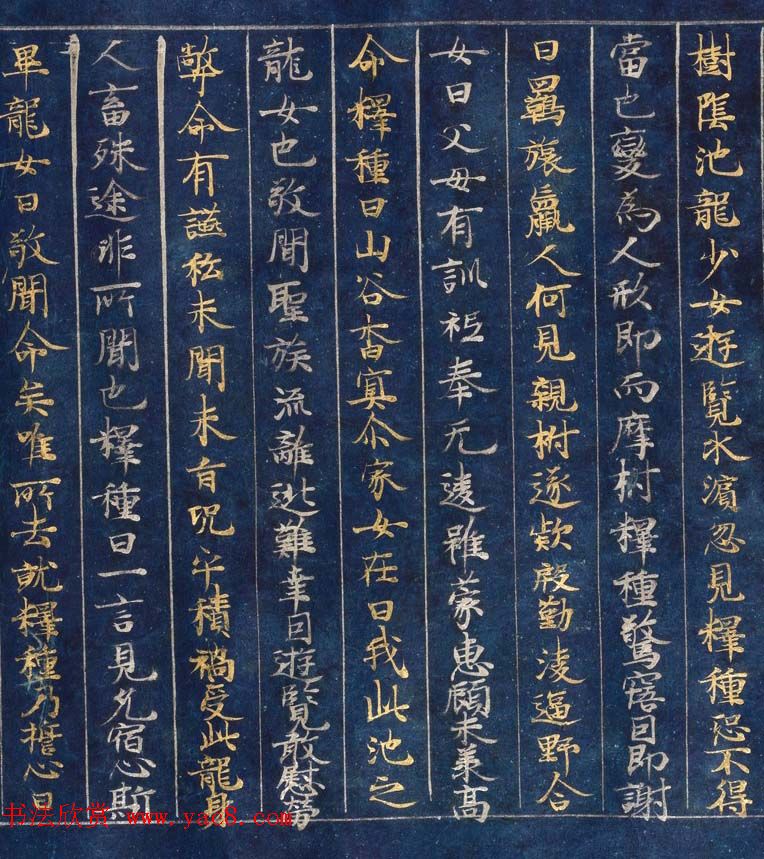 樹陰池龍少女遊覽水濱忽見釋種恐不得
當也變為人形即而摩柎釋種驚寤因即謝
曰羇旅羸人何見親柎遂款殷勤淩逼野合
女曰父母有訓祗奉无違雖蒙惠顧未承高
命釋種曰山谷杳冥尒家女在曰我此池之
龍女也敬聞聖族流離逃難幸因遊覽敢慰勞
弊命有讌私未聞来旨呪乎積禍受此龍身
人畜殊途非所聞也釋種曰一言見允宿心斯
畢龍女曰敬聞命矣唯所去就釋種乃誓心曰
书法欣赏 www.yac8.com